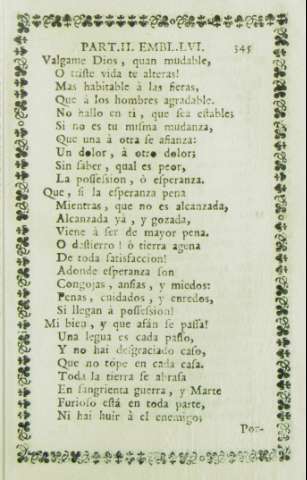 PART.II. EMBL.LVI. 345
Valgame Dios, quan mudable,
O triste vida te alteras!
Mas habitable à las fieras,
Que à los hombres agradable.
No hallo en ti, que sea estables
Si no es tu misma mudanza,
Que una à otra se afianza:
Un dolor, à otro dolor;
Sin saber, qual es peor,
La possession, ò esperanza.
Que, si la esperanza pena
Mientras, que no es alcanzada,
Alcanzada yà, y gozada,
Viene à ser de mayor pena.
O destierro! ò tierra agena
De toda satisfaccion!
Adonde esperanza son
Congojas, ansias, y miedos:
Penas, cuidados, y enredos,
Si llegan à possession!
Mi bien, y que afán se passa!
Una legua es cada passo,
Y no hai desgraciado caso,
Que no tope en cada casa.
Toda la tierra se abrasa
En sangrienta guerra, y Marte
Furioso està en toda parte,
Ni hai huir à el enemigo;
Por-